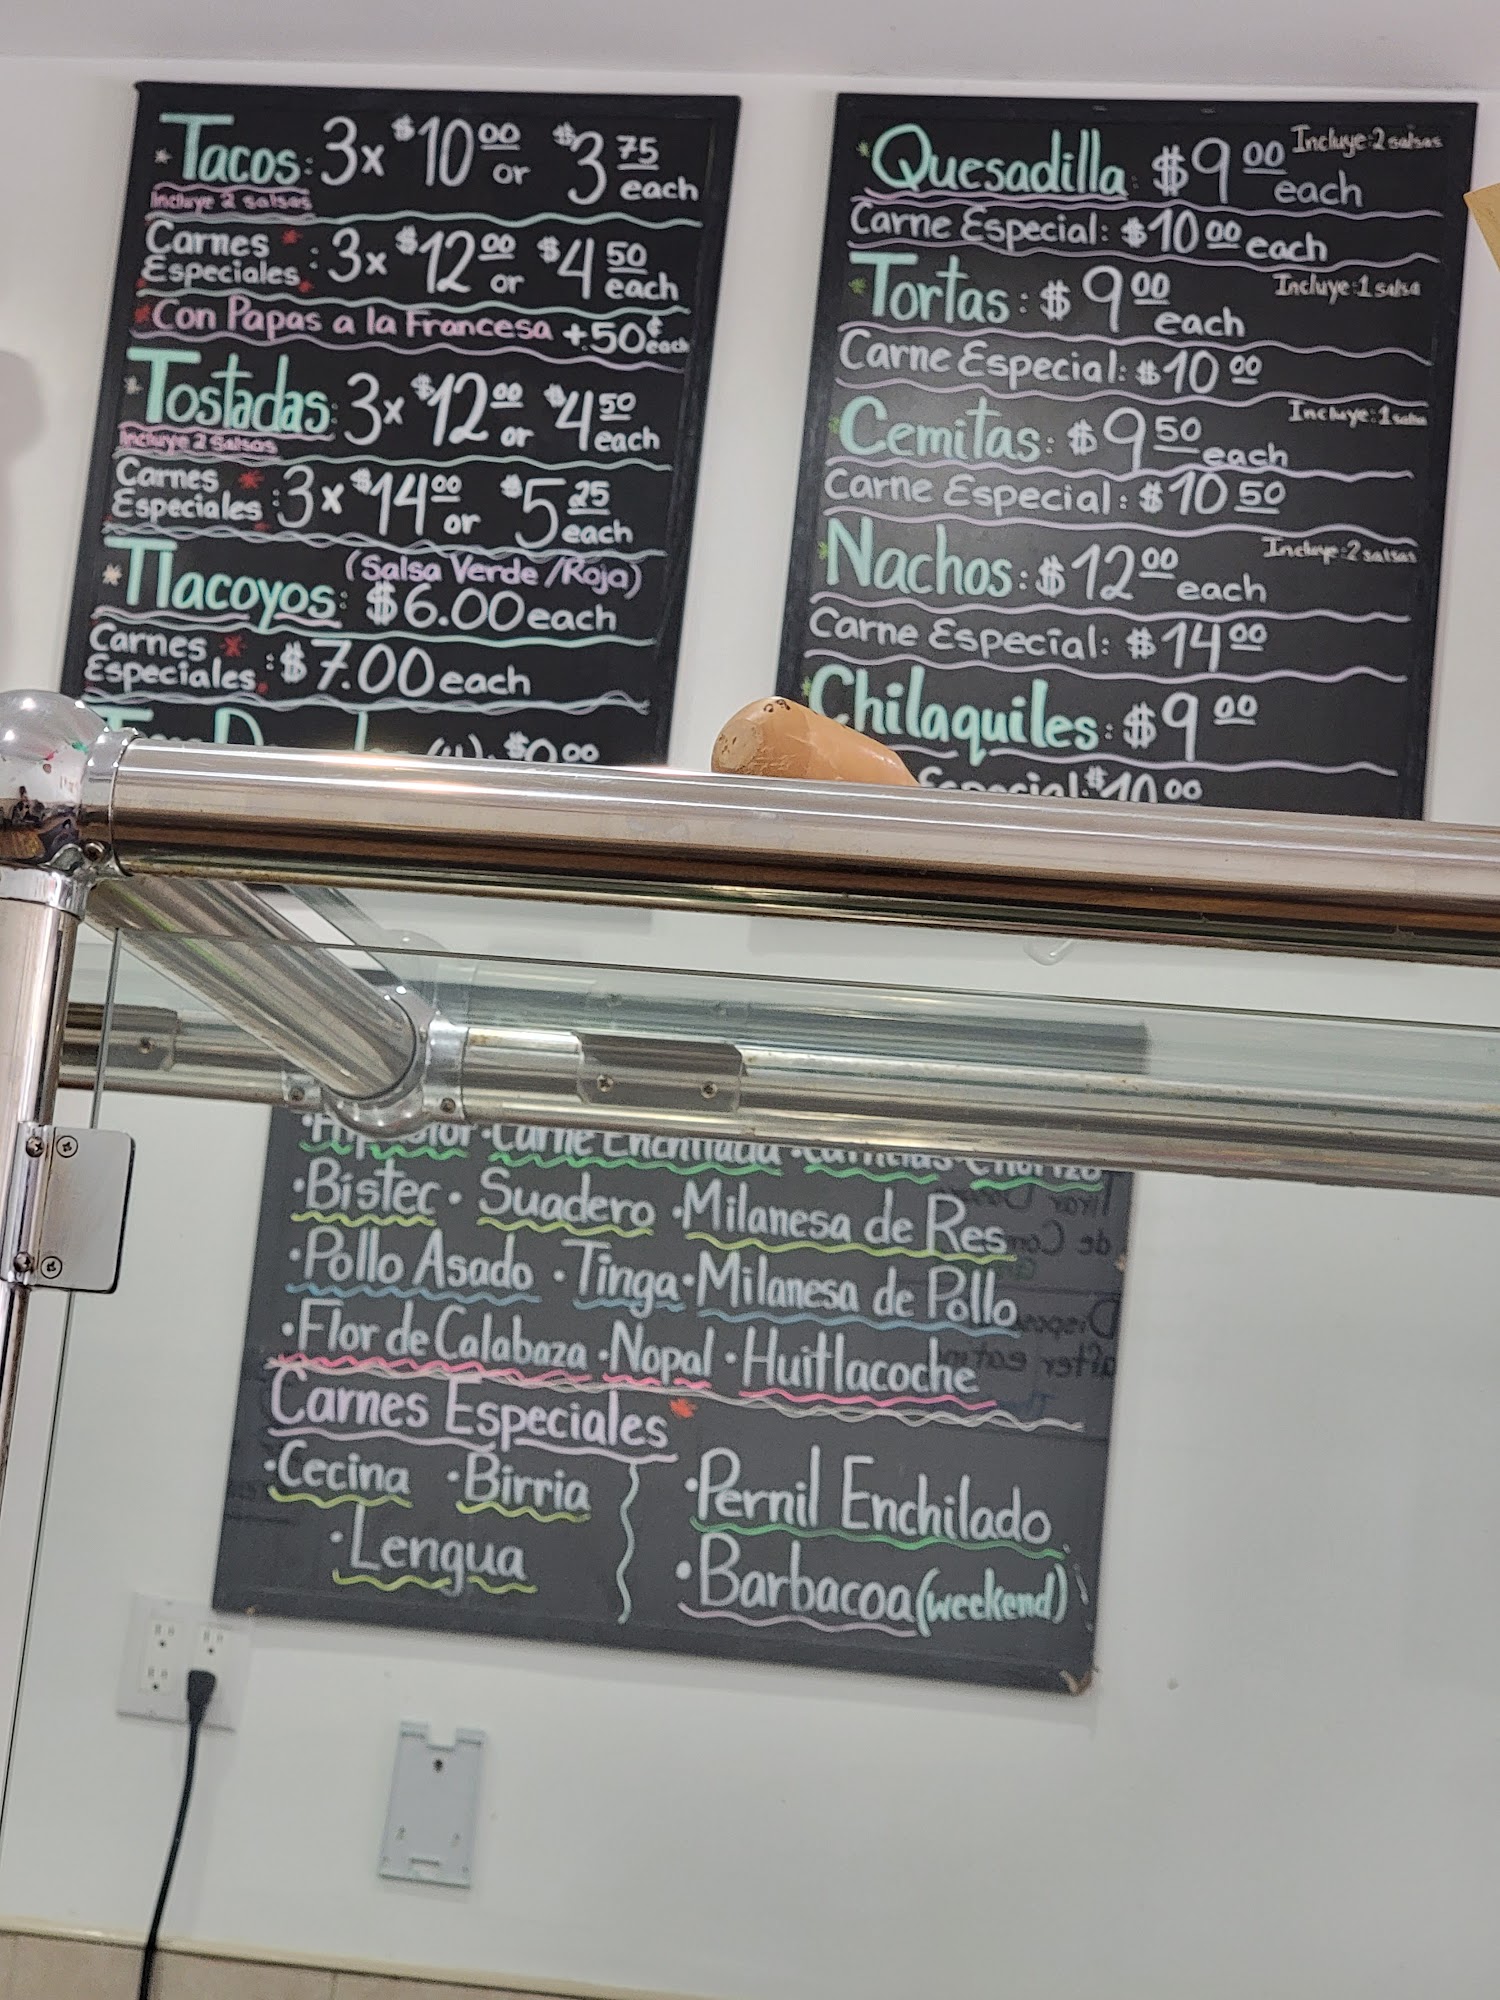 *Tacos: 3x $10 00 or $3 75 each
Incluye 2 salsas
Carnes Especiales * : 3x $12 00 or $4 50 each
*Con Papas a la Francesa +.50¢ each
*Tostadas: 3x $12 00 or $4 50 each
Incluye 2 Salsas
Carnes Especiales * : 3x $14 00 or $5 25 each
(Salsa Verde/Roja)
*Tlacoyos: $6.00 each
Carnes Especiales * : $7.00 each
*Quesadilla: $9 00 each Incluye: 2 salsas
Carne Especial: $10 00 each
*Tortas: $9 00 each Incluye: 1 salsa
Carne Especial: $10 00
*Cemitas: $9 50 each Incluye: 1 salsa
Carne Especial: $10 50
*Nachos: $12 00 each Incluye: 2 salsas
Carne Especial: $14 00
*Chilaquiles: $9 00
Especial: $10 00
·Carne Enchilada ·Carnitas ·Chorizo
·Bistec · Suadero ·Milanesa de Res
·Pollo Asado ·Tinga ·Milanesa de Pollo
·Flor de Calabaza ·Nopal ·Huitlacoche
Carnes Especiales *
·Cecina ·Birria
·Lengua
·Pernil Enchilado
·Barbacoa (weekend)